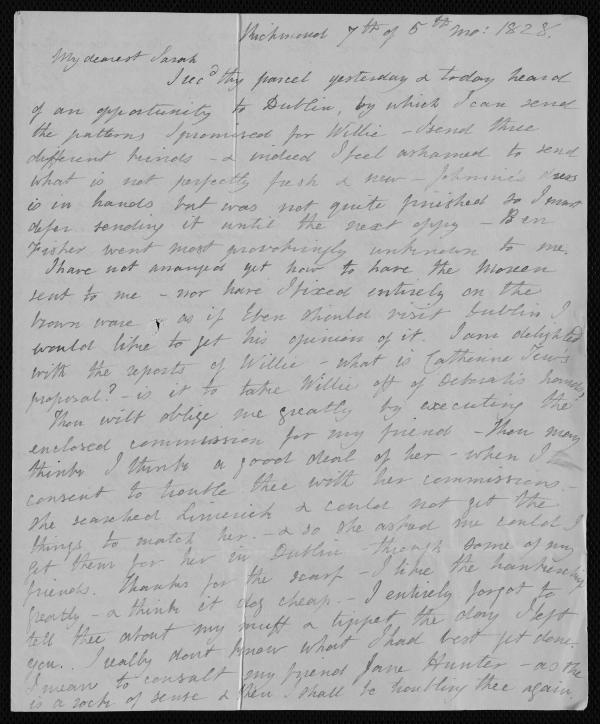 Richmond 7th of 5th mo: 1828.
My dearest Sarah
I recd thy parcel yesterday & today heard
of an opportunity to Dublin, by which I can send
the patterns I promised for Willie - I send three
different kinds - & indeed I feel ashamed to send
what is not perfectly fresh & new - Johnnie's dress
is in hands but was not quite finished so I must
defer sending it until the next oppy - Ben
Fisher went most provokingly unknown to me.
I have not arranged yet how to have the Moreen
sent to me - nor have I fixed entirely on the
brown ware as if Eben should visit Dublin I
would like to get his opinion of it. I am delighted
with the reports of Willie - what is Catherine
proposal? - is it to take Willie off of Deborah's hands
Thou wilt oblige me greatly by executing the
enclosed commission for my friend - Thou may
think I think a good deal of her - when I
consent to trouble thee with her commissions -
She searched Limerick & could not get the
things to match her. - & so she asked me could I
get them for her in Dublin through some of my
friends. Thanks for the scarf - I like the handkerchief
greatly - & think it dog cheap. - I entirely forgot to
tell thee about my muff & tippet the day I left
you. I really dont know what I had best get done.
I mean to consult my friend Jane Hunter - as she
is a rock of sense & then I shall be troubling thee again